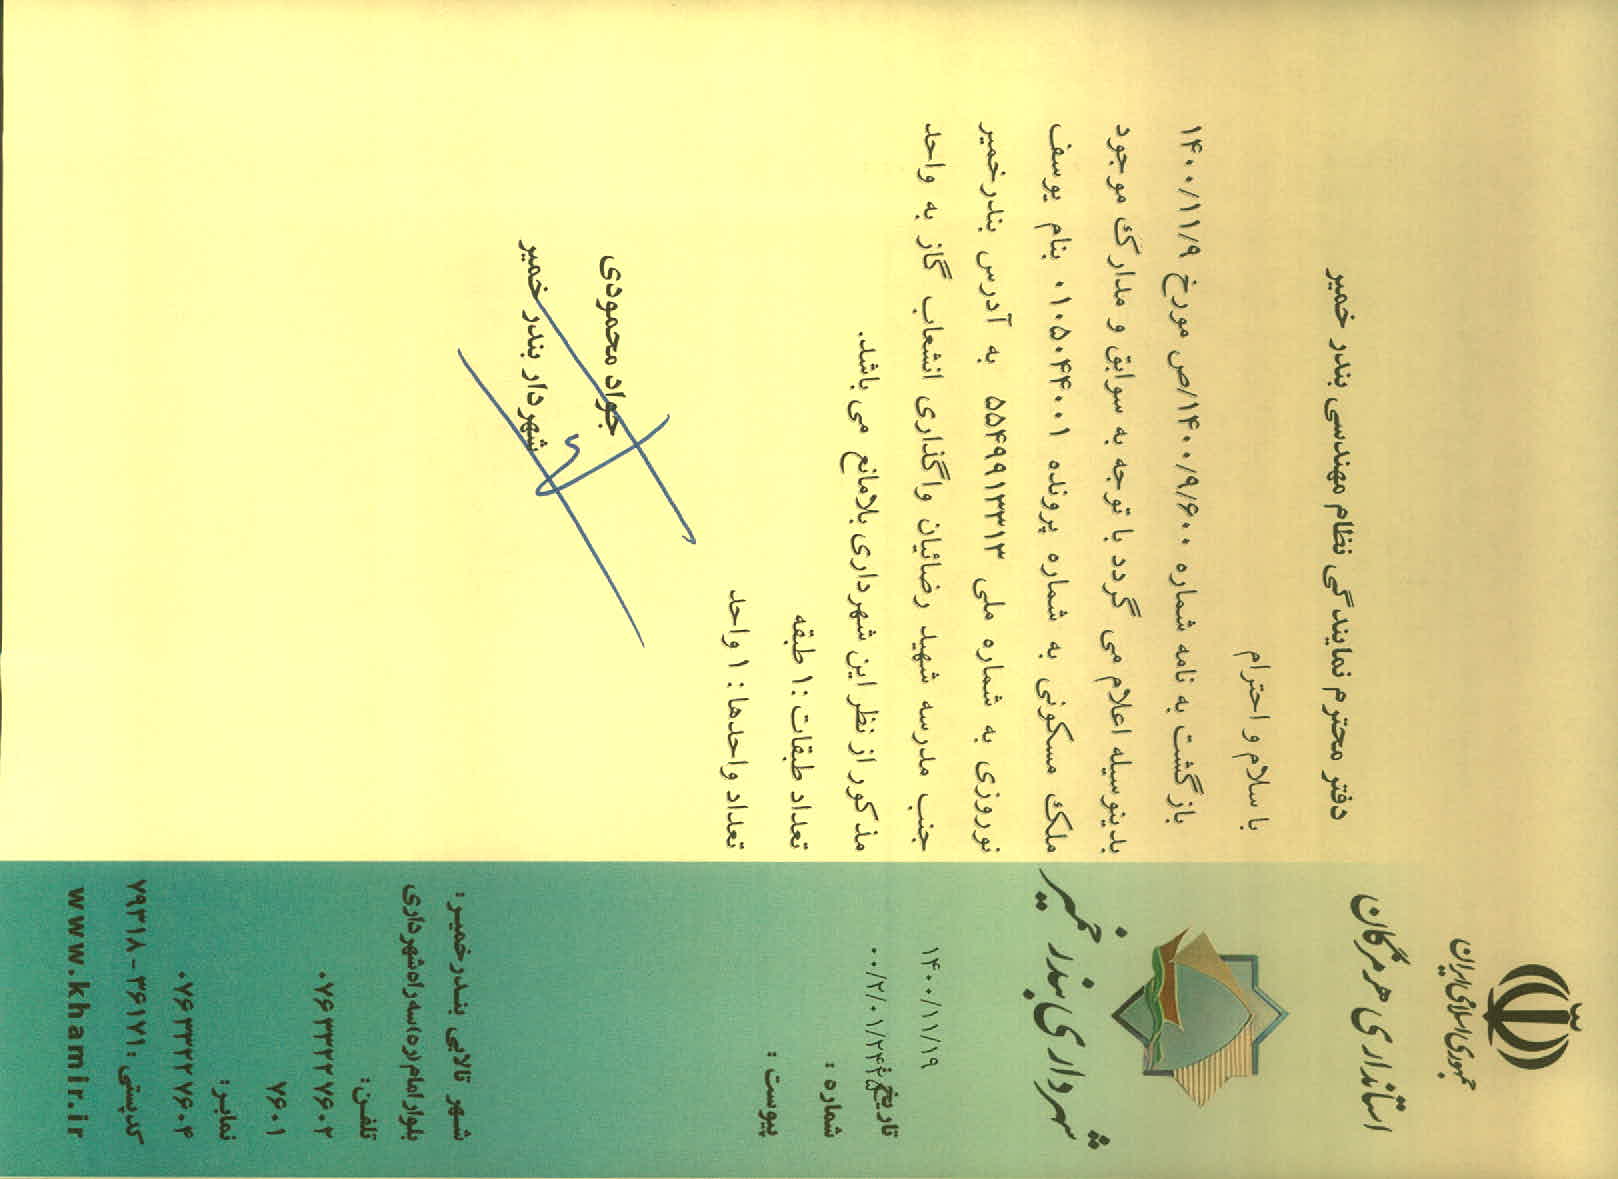 جمهوری اسلامی ایران
استانداری هرمزگان
شهرداری بندر خمیر
۱۴۰۰/۱۱/۱۹
تاریخ:
۰۰/۲/۰۱/۲۴۴
شماره :
پیوست :
دفتر محترم نمایندگی نظام مهندسی بندر خمیر
با سلام و احترام
بازگشت به نامه شماره ۱۴۰۰/۹/۶۰۰/ص مورخ ۱۴۰۰/۱۱/۹
بدینوسیله اعلام می گردد با توجه به سوابق و مدارک موجود
ملک مسکونی به شماره پرونده ۰۱۰۵۰۴۴۰۰۱ بنام یوسف
نوروزی به شماره ملی ۵۵۴۹۹۱۳۳۱۳ به آدرس بندرخمیر
جنب مدرسه شهید رضائیان واگذاری انشعاب گاز به واحد
مذکور از نظر این شهرداری بلامانع می باشد.
تعداد طبقات :۱ طبقه
تعداد واحدها : ۱ واحد
جواد محمودی
شهردار بندر خمیر
شهر تالابی بندرخمیر:
بلوار امام(ره)سه راه شهرداری
تلفن:
۰۷۶۳۳۲۲۷۶۰۲
۷۶۰۱
نمابر:
۰۷۶۳۳۲۲۷۶۰۴
کدپستی : ۳۶۱۷۱ - ۷۹۳۱۸
www.khamir.ir